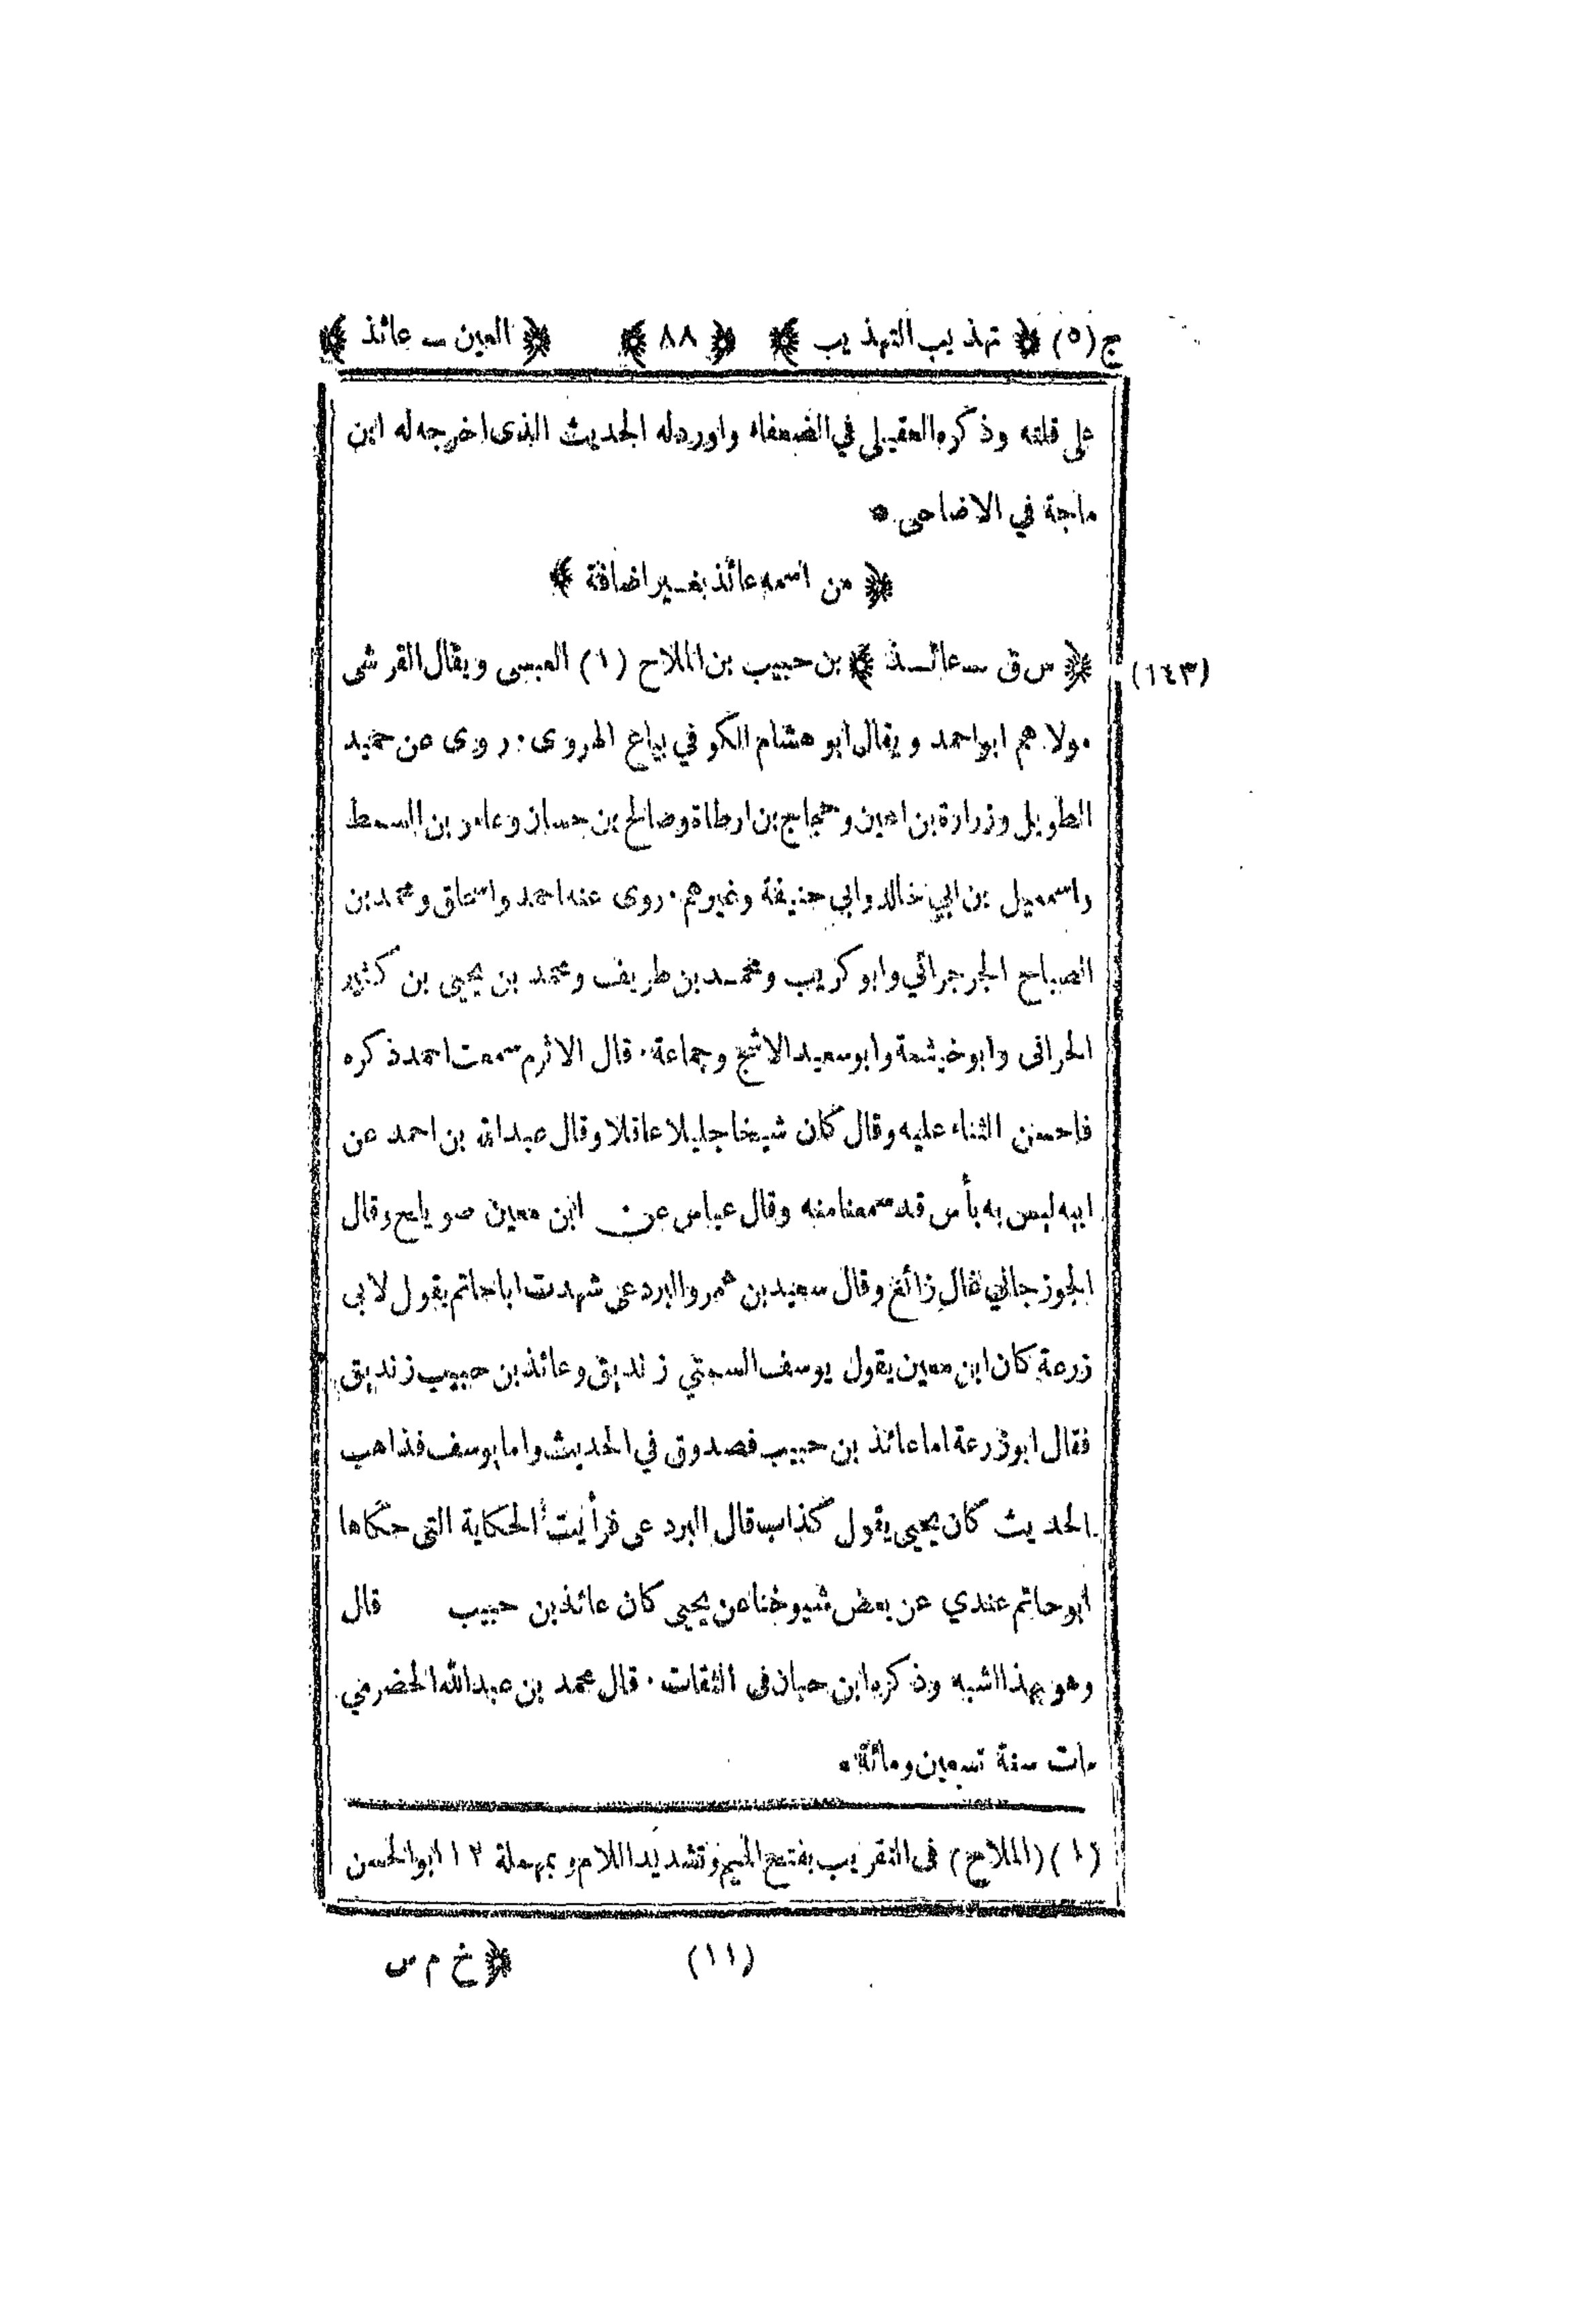 ج (٥) ﴿ تهذيب التهذيب ﴾ ﴿ ٨٨ ﴾ ﴿ العين ــ عائذ ﴾
على قلته وذكره العقيلي في الضعفاء واورد له الحديث الذى اخرجه له ابن
ماجة في الاضاحى *
﴿ من اسمه عائذ بغير اضافة ﴾
(١٤٣) ﴿ س ق ــ عائذ ﴾ بن حبيب بن الملاح (١) العبسى ويقال القرشى
مولاهم ابو احمد ويقال ابو هشام الكوفي بياع الهروى . روى عن حميد
الطويل وزرارة بن اعين وحجاج بن ارطاة وصالح بن حسان وعامر بن السمط
واسمعيل بن ابي خالد وابي حنيفة وغيرهم . روى عنه احمد واسحاق ومحمد بن
الصباح الجرجرائي وابو كريب ومحمد بن طريف ومحمد بن يحيى بن كثير
الحرانى وابو خيثمة وابو سعيد الاشج وجماعة . قال الاثرم سمعت احمد ذكره
فاحسن الثناء عليه وقال كان شيخا جليلا عاقلا وقال عبد الله بن احمد عن
ابيه ليس به بأس قد سمعنا منه وقال عباس عن ابن معين صويلح وقال
الجوزجاني غال زائغ وقال سعيد بن عمرو البردعى شهدت ابا حاتم يقول لابى
زرعة كان ابن معين يقول يوسف السمتي زنديق وعائذ بن حبيب زنديق
فقال ابو زرعة اما عائذ بن حبيب فصدوق في الحديث واما يوسف فذاهب
الحديث كان يحيى يقول كذاب قال البردعى فرأيت الحكاية التى حكاها
ابو حاتم عندي عن بعض شيوخنا عن يحيى كان عائذ بن حبيب قال
وهو بهذا اشبه وذكره ابن حبان فى الثقات . قال محمد بن عبد الله الحضرمي
مات سنة تسعين ومائة *
(١) (الملاح) فى التقريب بفتح الميم وتشديد اللام وبمهملة ١٢ ابو الحسن
(١١) ﴿ خ م س